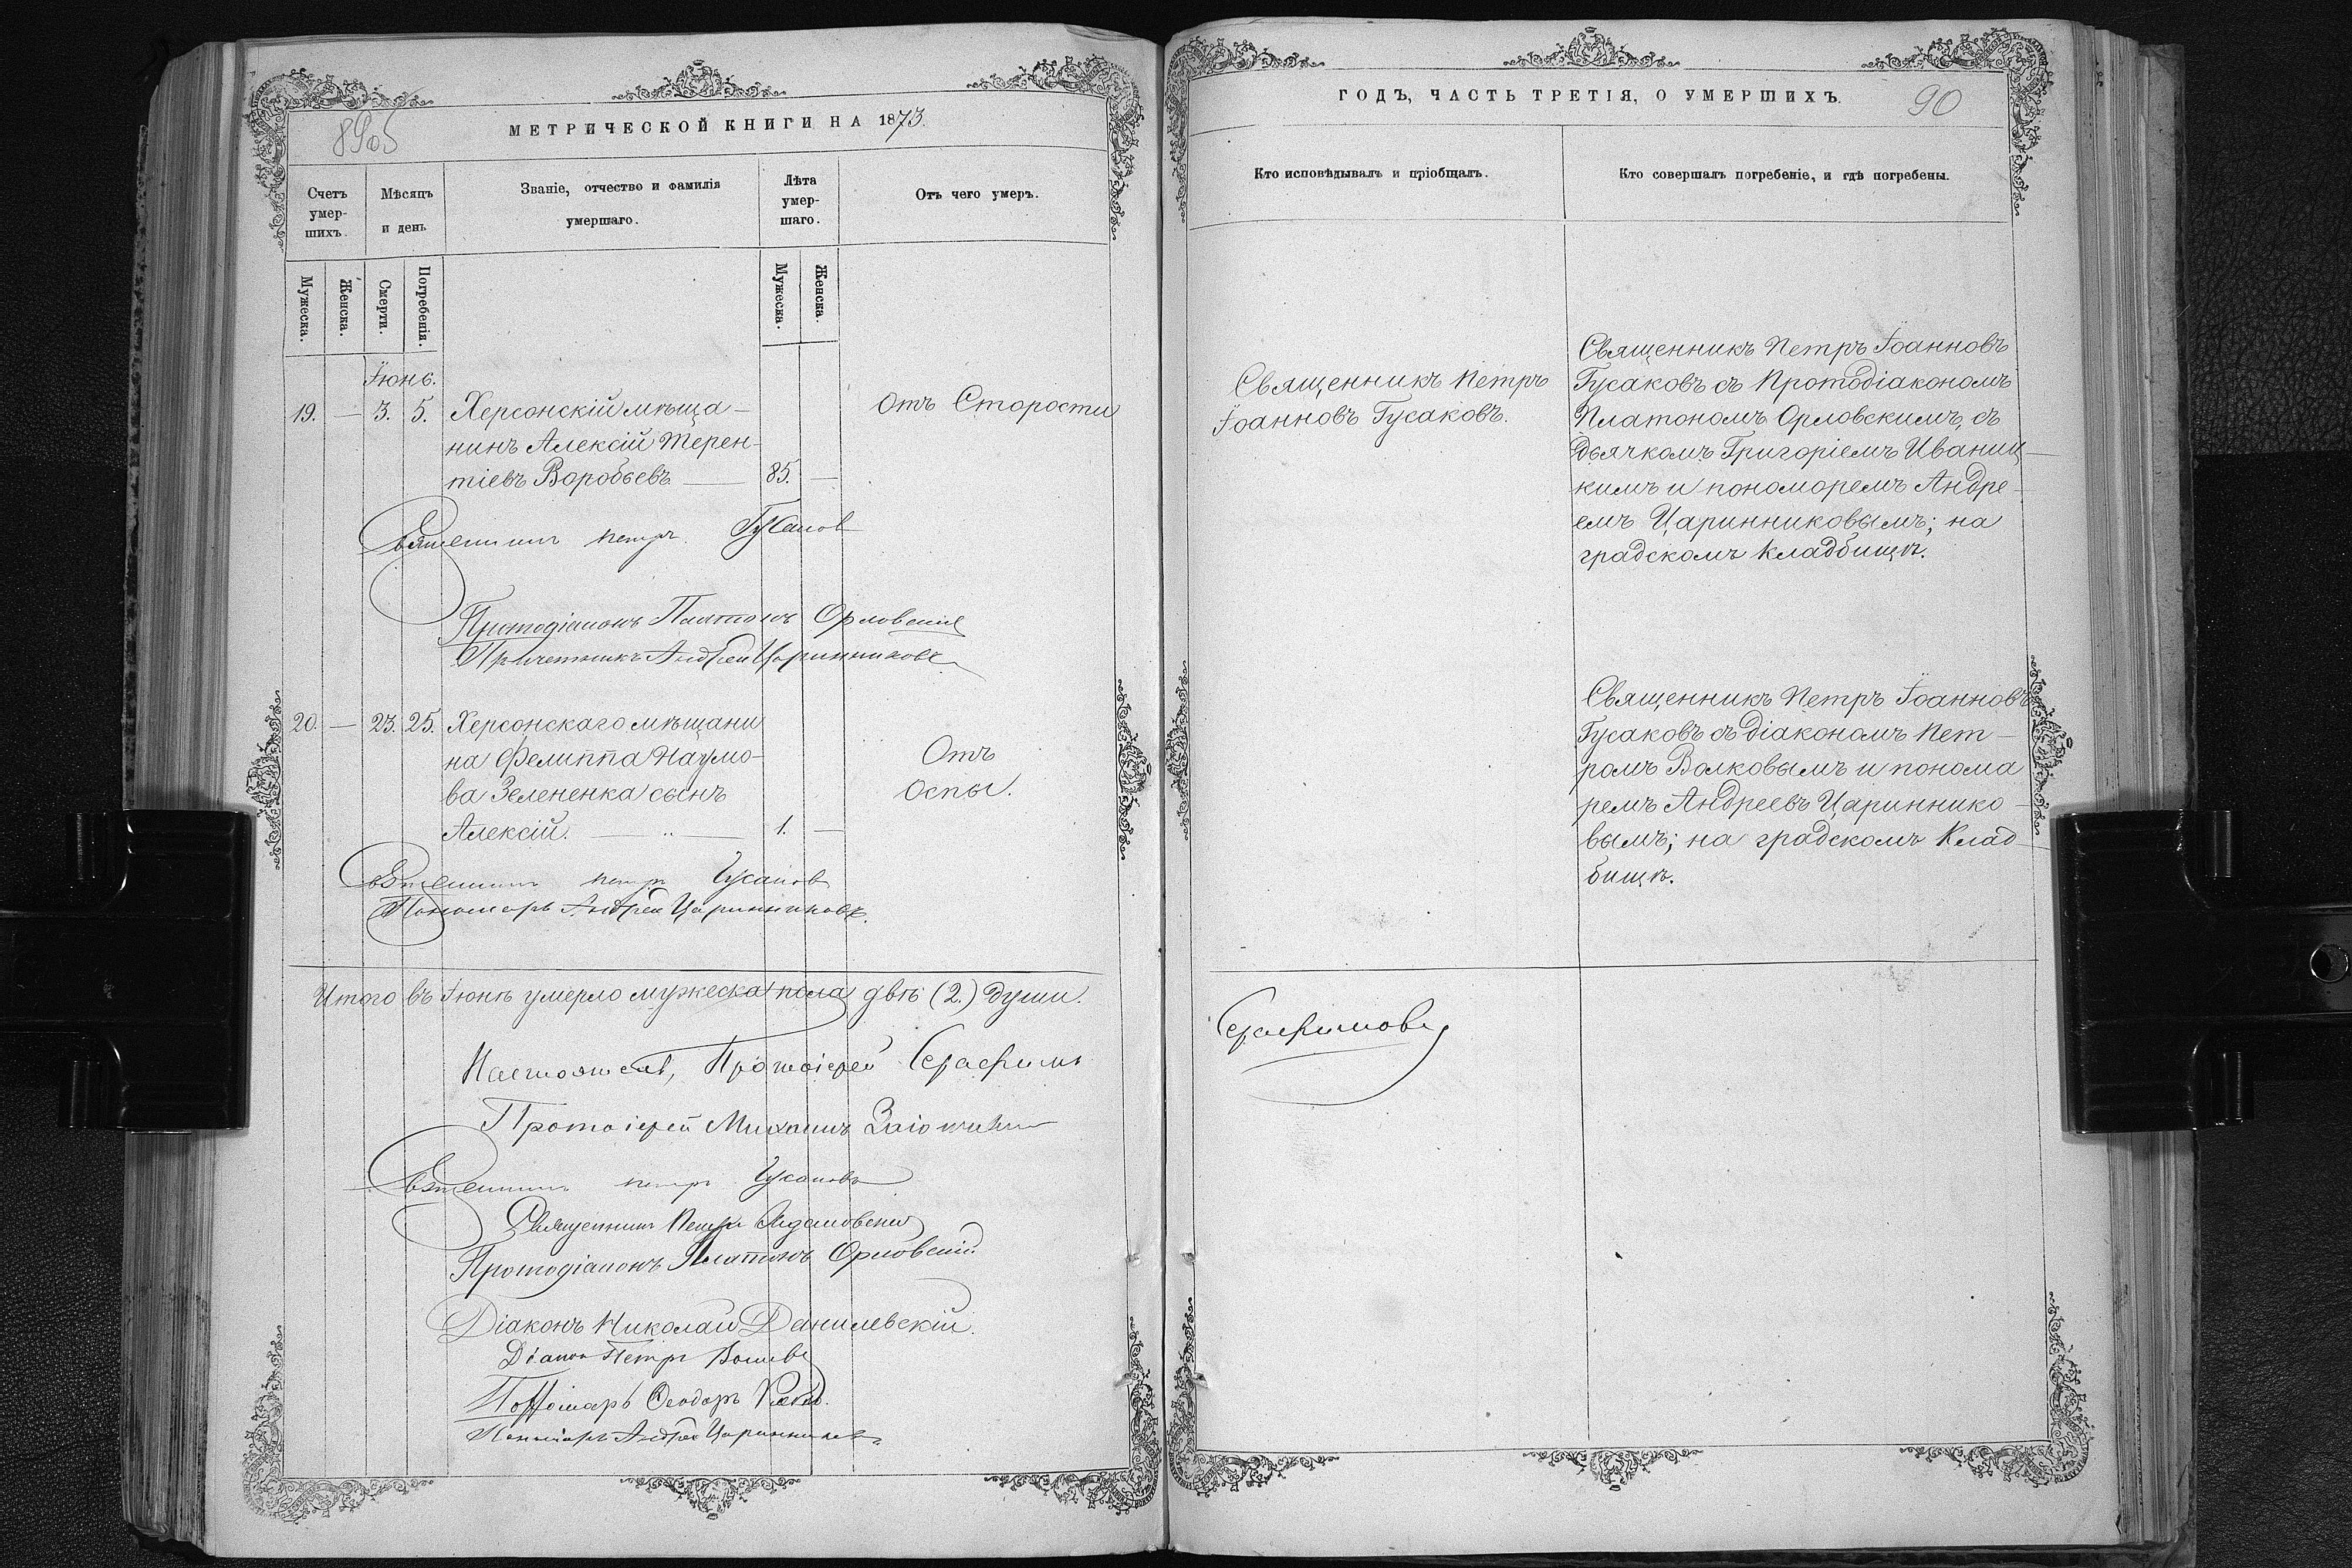 МЕТРИЧЕСКОЙ КНИГИ НА 1873.
Счетъ умер-шихъ.
Мѣсяцъ и день
Званіе, отчество и фамилія умершаго.
Лѣта умер-шаго.
Отъ чего умеръ.
Мужеска.
Женска.
Смерти.
Погребенія.
Мужеска.
Женска.
Іюнь.
19. — 3. 5. Херсонскій мѣща- отъ Старости
нинъ Алексій Терен-
тіевъ Воробьевъ — 85. —
Священникъ Петръ Гусаковъ
Протодіаконъ Платонъ Орловскій
Причетникъ Андрей Царинниковъ
20. — 23. 25. Херсонскаго мѣщани
на Филиппа Наумо- Отъ
ва Зелененка сынъ Оспы.
Алексій. — „ — 1. —
Священникъ Петръ Гусаковъ
Пономарь Андрей Царинниковъ.
Итого въ Іюнѣ умерло мужеска пола двѣ (2.) души.
Настоятель, Протоіерей Серафимъ
Протоіерей Михаилъ
Священникъ Петръ Гусаковъ
Священникъ Петръ
Протодіаконъ Платонъ Орловскій
Діаконъ Николай Данилевскій.
Діаконъ Петръ Волковъ
Пономарь Ѳеодоръ
Пономарь Андрей Царинниковъ
ГОДЪ, ЧАСТЬ ТРЕТІЯ, О УМЕРШИХЪ.
90
Кто исповѣдывалъ и пріобщалъ.
Кто совершалъ погребеніе, и гдѣ погребены.
Священникъ Петръ
Іоанновъ Гусаковъ.
Священникъ Петръ Іоанновъ
Гусаковъ съ Протодіакономъ
Платономъ Орловскимъ, съ
Дьячкомъ Григоріемъ Иваниц-
кимъ и пономоремъ Андре-
емъ Царинниковымъ; на
градскомъ кладбищѣ.
Священникъ Петръ Іоанновъ
Гусаковъ съ діакономъ Пет-
ромъ Волковымъ и понома
ремъ Андреевъ Царіннико-
вымъ; на градскомъ Клад-
бищѣ.
Серафимовъ